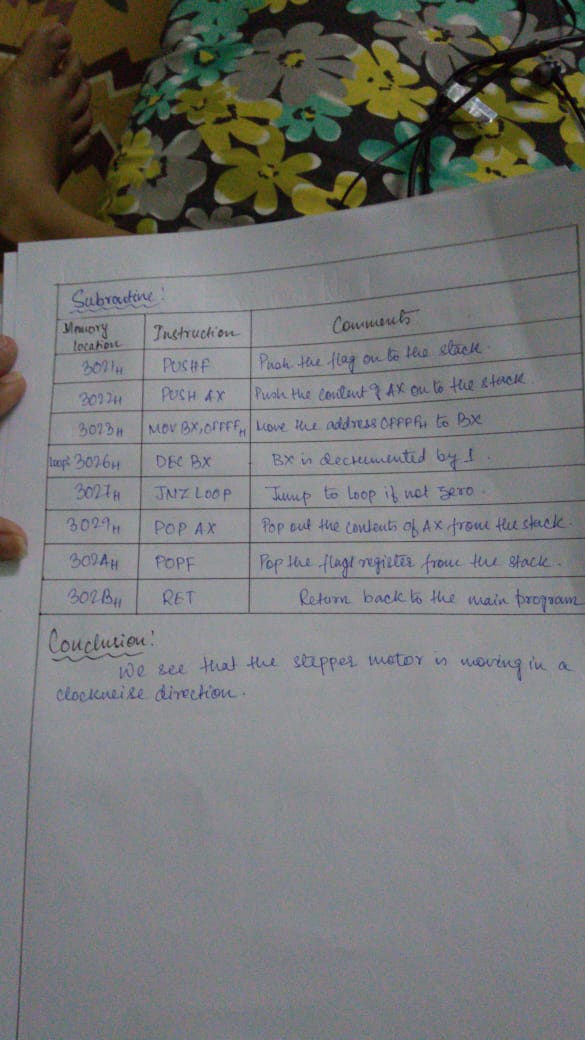 Subroutine:
Memory location Instruction Comments
3021H PUSHF Push the flag on to the stack.
3022H PUSH AX Push the content of AX on to the stack.
3023H MOV BX,0FFFFH Move the address 0FFFFH to BX
Loop: 3026H DEC BX BX is decremented by 1.
3027H JNZ LOOP Jump to loop if not zero.
3029H POP AX Pop out the contents of AX from the stack.
302AH POPF Pop the flags register from the stack.
302BH RET Return back to the main program
Conclusion:
We see that the stepper motor is moving in a
clockwise direction.